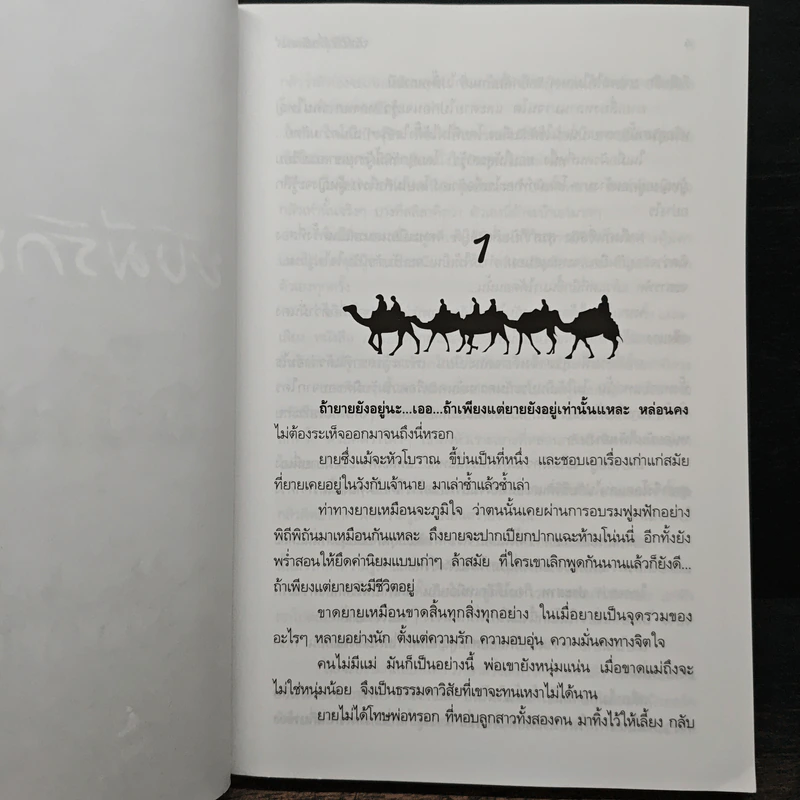 1
ถ้ายายยังอยู่นะ...เออ...ถ้าเพียงแต่ยายยังอยู่เท่านั้นแหละ หล่อนคง
ไม่ต้องระเห็จออกมาจนถึงนี่หรอก
ยายซึ่งแม้จะหัวโบราณ ขี้บ่นเป็นที่หนึ่ง และชอบเอาเรื่องเก่าแก่สมัย
ที่ยายเคยอยู่ในวังกับเจ้านาย มาเล่าซ้ำแล้วซ้ำเล่า
ท่าทางยายเหมือนจะภูมิใจ ว่าตนนั้นเคยผ่านการอบรมฟูมฟักอย่าง
พิถีพิถันมาเหมือนกันแหละ ถึงยายจะปากเปียกปากแฉะห้ามโน่นนี่ อีกทั้งยัง
พร่ำสอนให้ยึดค่านิยมแบบเก่าๆ ล้าสมัย ที่ใครเขาเลิกพูดกันนานแล้วก็ยังดี...
ถ้าเพียงแต่ยายจะมีชีวิตอยู่
ขาดยายเหมือนขาดสิ้นทุกสิ่งทุกอย่าง ในเมื่อยายเป็นจุดรวมของ
อะไรๆ หลายอย่างนัก ตั้งแต่ความรัก ความอบอุ่น ความมั่นคงทางจิตใจ
คนไม่มีแม่ มันก็เป็นอย่างนี้ พ่อเขายังหนุ่มแน่น เมื่อขาดแม่ถึงจะ
ไม่ใช่หนุ่มน้อย จึงเป็นธรรมดาวิสัยที่เขาจะทนเหงาไม่ได้นาน
ยายไม่ได้โทษพ่อหรอก ที่หอบลูกสาวทั้งสองคน มาทิ้งไว้ให้เลี้ยง กลับ